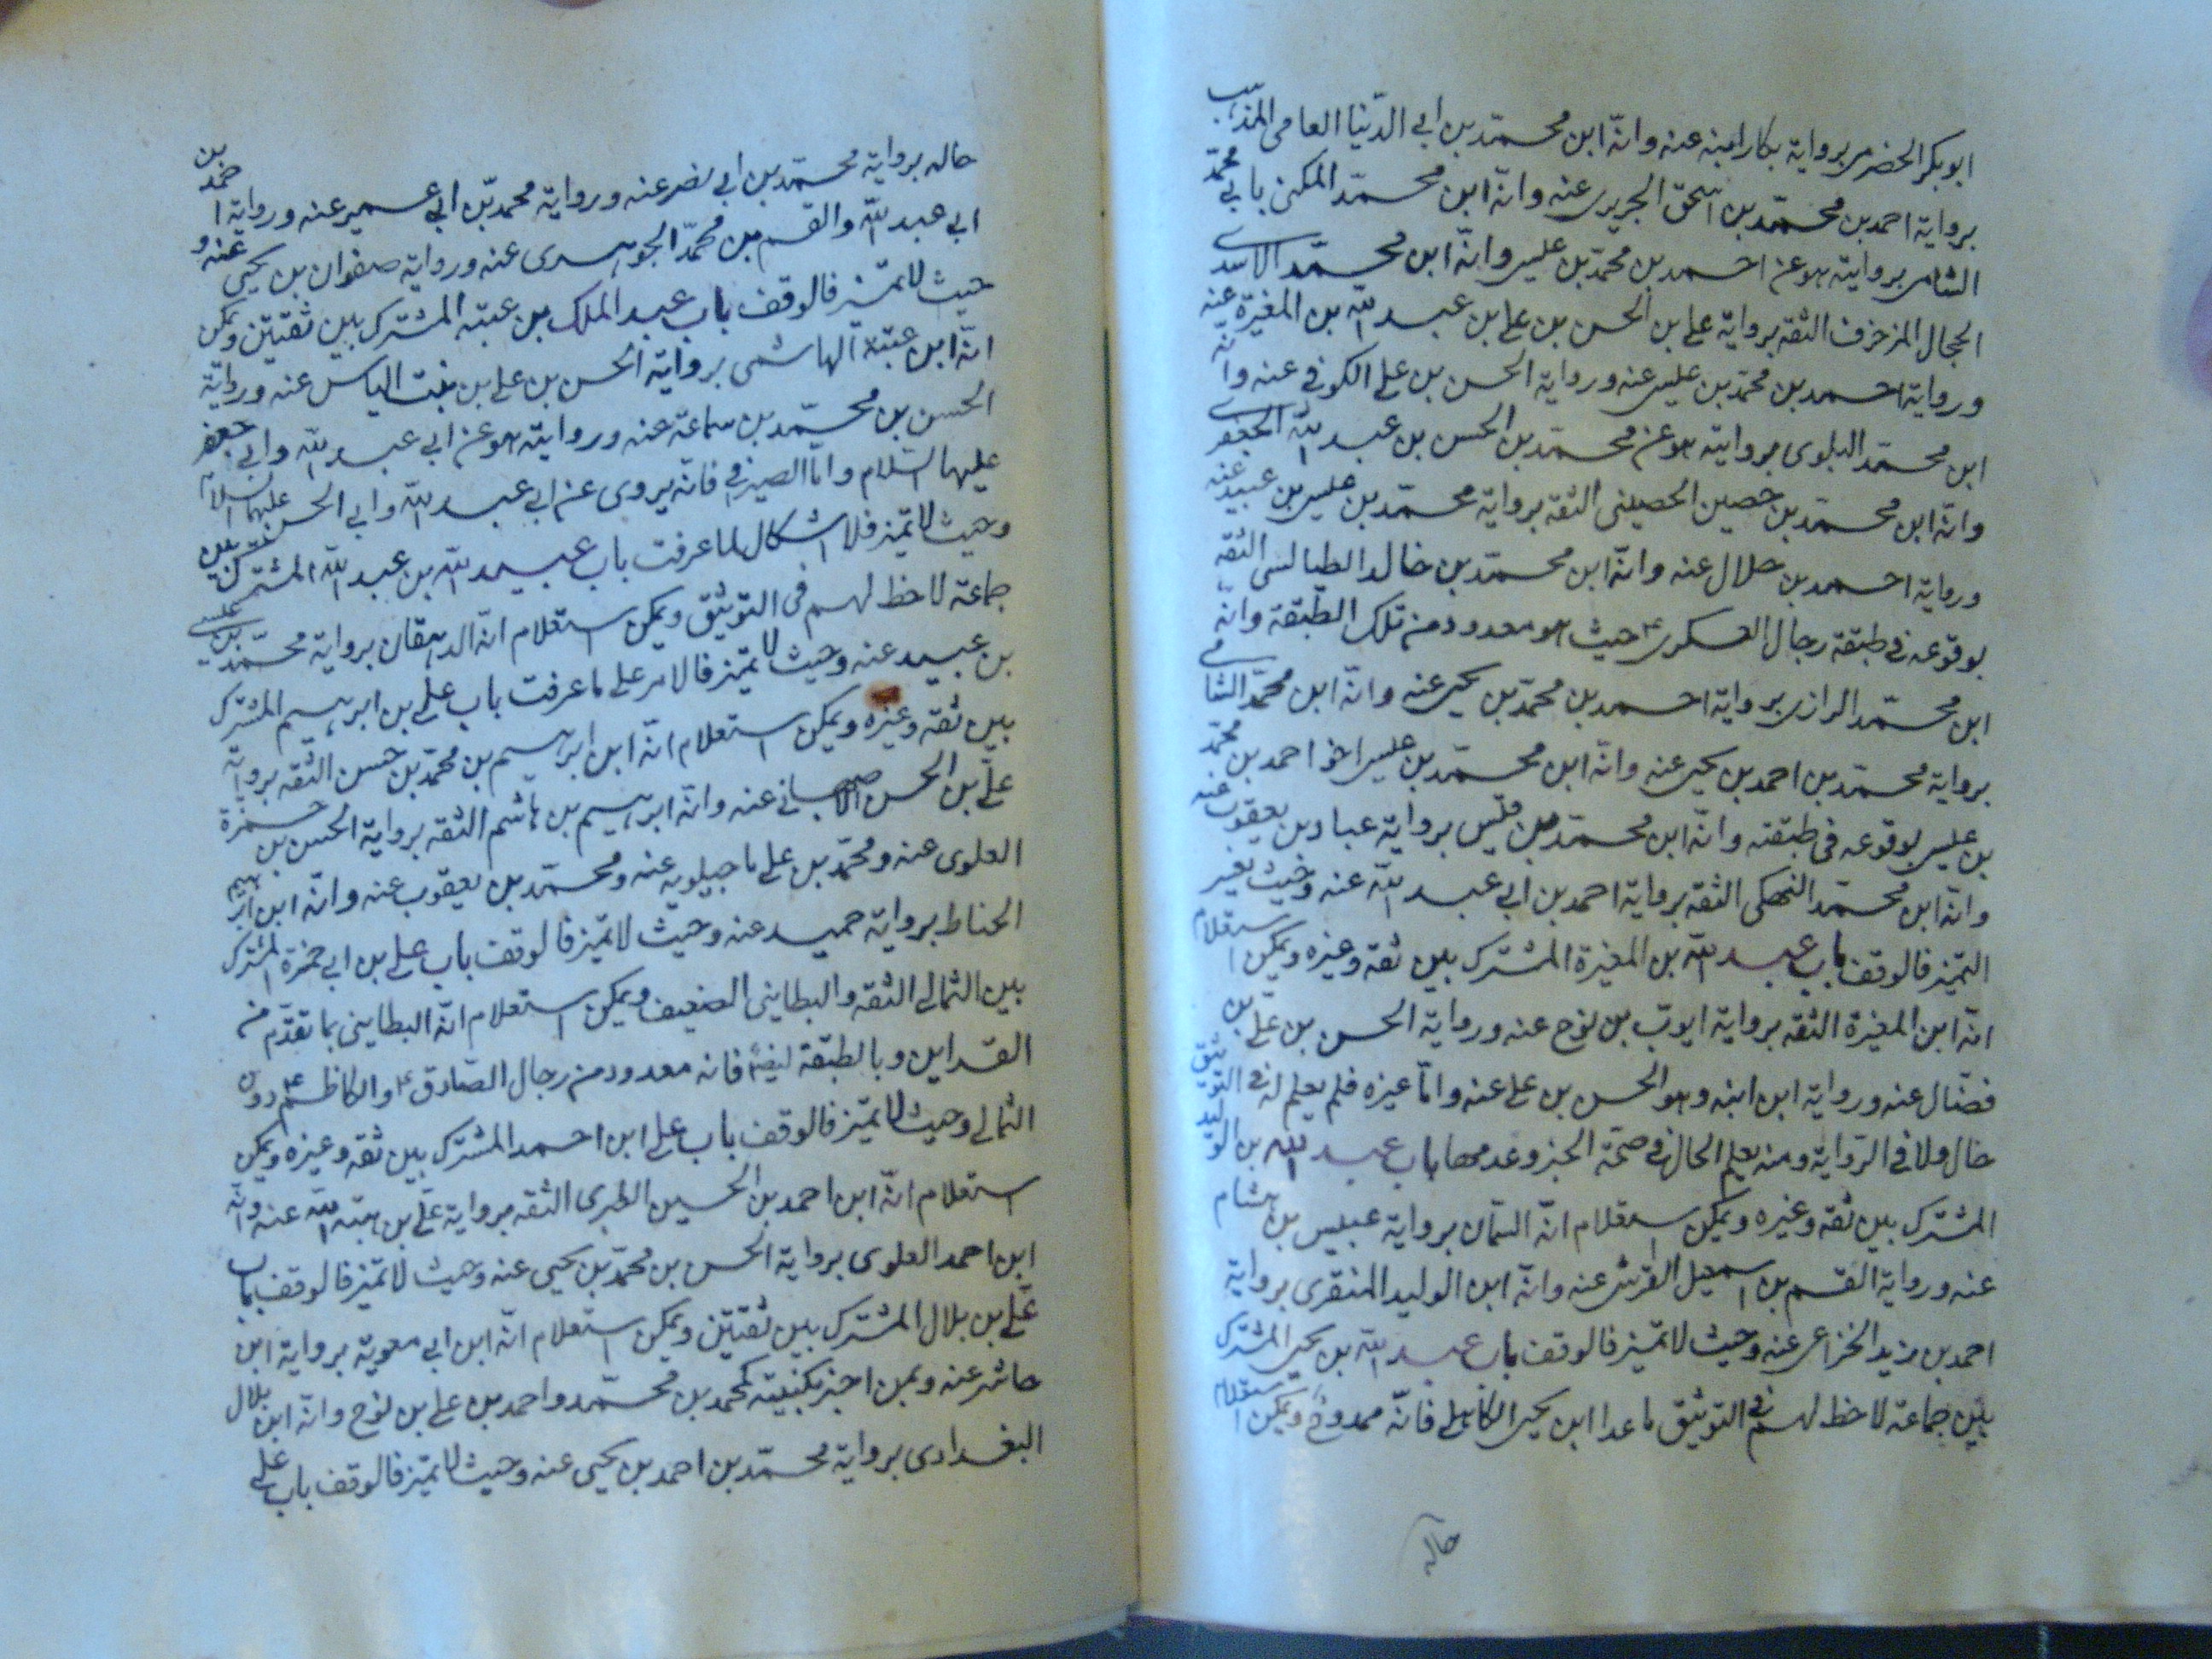 ابو بكر الحضرمى برواية بكار ابنه عنه وانّه ابن محمّد بن ابى الدّنيا العامى المذهب
برواية احمد بن محمّد بن اسحق الجريرى عنه وانّه ابن محمّد المكنى بابى محمّد
الشامى بروايته هو عن احمد بن محمّد بن عيسى وانّه ابن محمّد الاسدى
الحجال المزخرف الثقه برواية على بن الحسن بن على بن عبد الله بن المغيرة عنه
ورواية احمد بن محمّد بن عيسى عنه ورواية الحسن بن على الكوفى عنه وانّه
ابن محمّد البلوى بروايته هو عن محمّد بن الحسن بن عبد الله الجعفرى
وانّه ابن محمّد بن حصين الحصينى الثقه برواية محمّد بن عيسى بن عبيد عنه
ورواية احمد بن هلال عنه وانّه ابن محمّد بن خالد الطيالسى الثقه
بوقوعه فى طبقة رجال العسكرى ع حيث هو معدود من تلك الطّبقة وانّه
ابن محمّد الرازى برواية احمد بن محمّد بن يحيى عنه وانّه ابن محمّد الشامى
برواية محمّد بن احمد بن يحيى عنه وانّه ابن محمّد بن عيسى اخو احمد بن محمّد
بن عيسى بوقوعه فى طبقته وانّه ابن محمّد بن قيس برواية عباد بن يعقوب عنه
وانّه ابن محمّد النهيكى الثقه برواية احمد بن ابى عبد الله عنه وحيث يعسر
التميّز فالوقف باب عبد الله بن المغيرة المشترك بين ثقه وغيره ويمكن استعلام
انّه ابن المغيرة الثقه برواية ايوب بن نوح عنه ورواية الحسن بن علىّ بن
فضّال عنه ورواية ابن ابنه وهو الحسن بن على عنه وامّا غيره فلم يعلم له فى التوثيق
حال ولا فى الرّواية ومنه يعلم الحال فى صحّة الخبر وعدمها باب عبد الله بن الوليد
المشترك بين ثقه وغيره ويمكن استعلام انّه السمّان برواية عبيس بن هشام
عنه ورواية القسم بن اسمعيل القرشى عنه وانّه ابن الوليد المنقرى برواية
احمد بن يزيد الخزاعى عنه وحيث لا تميّز فالوقف باب عبد الله بن يحيى المشترك
بين جماعة لا حظ لهم فى التوثيق ما عدا ابن يحيى الكاهلى فانّه ممدوح ويمكن استعلام
حاله
حاله برواية محمّد بن ابى نصر عنه ورواية محمّد بن ابى عمير عنه ورواية احمد بن
ابى عبد الله والقسم بن محمّد الجوهرى عنه ورواية صفوان بن يحيى عنه و
حيث لا تميّز فالوقف باب عبد الملك بن عتبه المشترك بين ثقتين ويمكن
انّه ابن عتبة الهاشمى برواية الحسن بن على بن بنت الياس عنه ورواية
الحسن بن محمّد بن سماعة عنه وروايته هو عن ابى عبد الله وابى جعفر
عليهما السّلام وامّا الصيرفى فانّه يروى عن ابى عبد الله وابى الحسن عليهما السلام
وحيث لا تميّز فلا اشكال لما عرفت باب عبيد الله بن عبد الله المشترك بين
جماعة لا حظ لهم فى التوثيق ويمكن استعلام انّه الدهقان برواية محمّد بن عيسى
بن عبيد عنه وحيث لا تميّز فالامر على ما عرفت باب علىّ بن ابرهيم المشترك
بين ثقه وغيره ويمكن استعلام انّه ابن ابرهيم بن محمّد بن حسن الثقه برواية
علىّ بن الحسن الاصبهانى عنه وانّه ابرهيم بن هاشم الثقه برواية الحسن بن حمزة
العلوى عنه ومحمّد بن على ماجيلويه عنه ومحمّد بن يعقوب عنه وانّه ابن ابرهيم
الحناط برواية حميد عنه وحيث لا تميّز فالوقف باب على بن ابى حمزة المشترك
بين الثمالى الثقه والبطاينى الضعيف ويمكن استعلام انّه البطاينى بما تقدّم من
القراين وبالطبّقة ايضاً فانه معدود من رجال الصّادق ع والكاظم ع دون
الثمالى وحيث لا تميّز فالوقف باب على ابن احمد المشترك بين ثقه وغيره ويمكن
استعلام انّه ابن احمد بن الحسين الطبرى الثقه برواية علىّ بن هبة الله عنه وانّه
ابن احمد العلوى برواية الحسن بن محمّد بن يحيى عنه وحيث لا تميّز فالوقف باب
علىّ بن بلال المشترك بين ثقتين ويمكن استعلام انّه ابن ابى معوية برواية ابن
حاشر عنه وبمن اخبر بكنيته كمحمد بن محمّد واحمد بن على بن نوح وانّه ابن بلال
البغدادى برواية محمّد بن احمد بن يحيى عنه وحيث لا تميّز فالوقف باب على